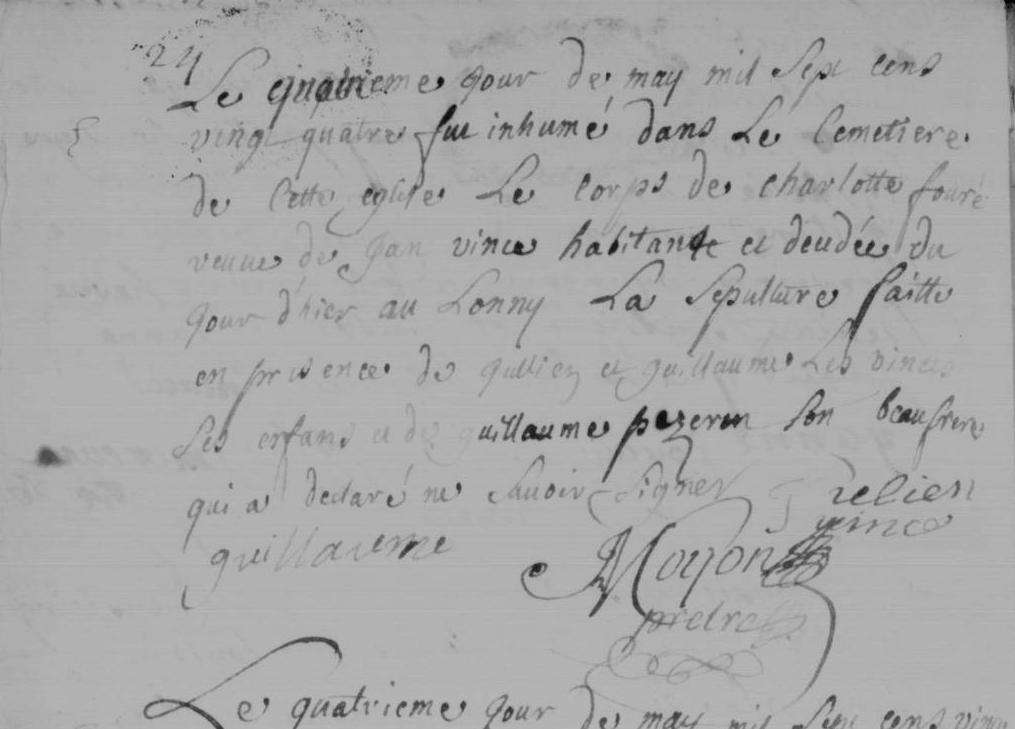 24
Le quatrieme jour de may mil sept cens
vingt quatre fut inhumé dans Le Cemetiere
de Cette eglise Le corps de charlotte fouré
veuve de Jan vince habitante et decedée du
jour d'hier au Lonny La Sepulture faitte
en presence de Jullien et guillaume Les vinces
Ses enfans et de guillaume pezeron Son beaufrere
qui a declaré ne Savoir Signer
Julien
vince
guillaume
Moyon
pretre
Le quatrieme jour de may mil Sept cens vingt